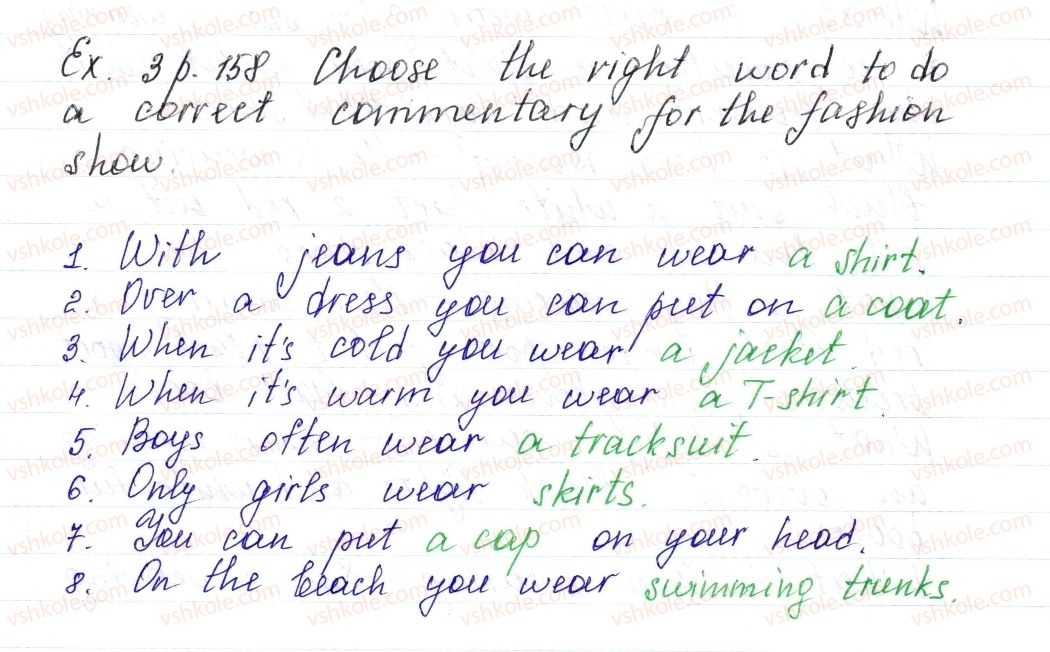 Ex. 3 p. 158 Choose the right word to do
a correct commentary for the fashion
show.
1. With jeans you can wear a shirt.
2. Over a dress you can put on a coat.
3. When it's cold you wear a jacket.
4. When it's warm you wear a T-shirt.
5. Boys often wear a tracksuit.
6. Only girls wear skirts.
7. You can put a cap on your head.
8. On the beach you wear swimming trunks.